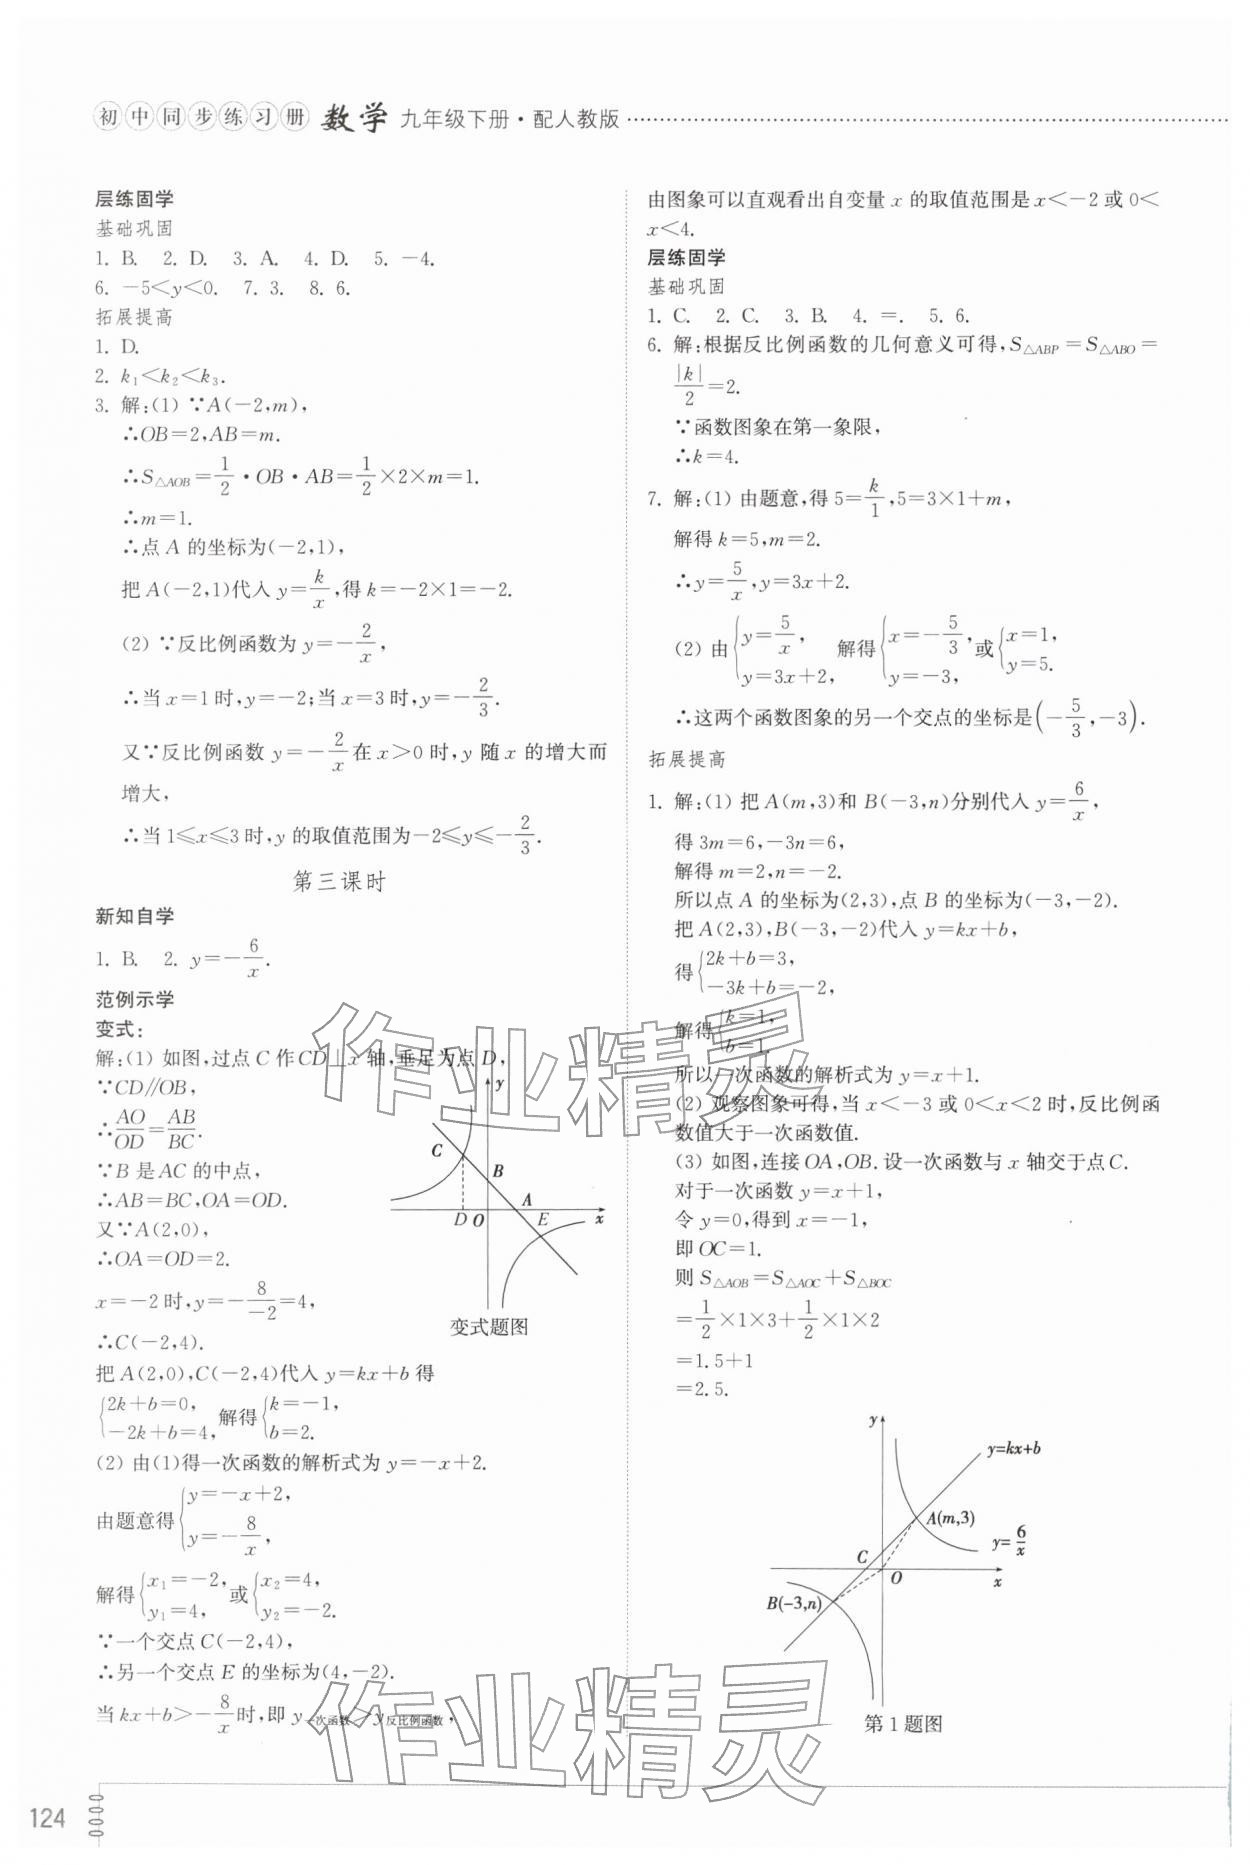 初中同步练习册 数学 九年级下册·配人教版
层练固学
基础巩固
1. B. 2. D. 3. A. 4. D. 5. －4.
6. －5＜y＜0. 7. 3. 8. 6.
拓展提高
1. D.
2. k₁＜k₂＜k₃.
3. 解:(1) ∵A(－2,m),
∴OB＝2,AB＝m.
∴S△AOB＝1/2·OB·AB＝1/2×2×m＝1.
∴m＝1.
∴点 A 的坐标为(－2,1),
把 A(－2,1)代入 y＝k/x,得 k＝－2×1＝－2.
(2) ∵反比例函数为 y＝－2/x,
∴当 x＝1 时,y＝－2;当 x＝3 时,y＝－2/3.
又∵反比例函数 y＝－2/x 在 x＞0 时,y 随 x 的增大而
增大,
∴当 1≤x≤3 时,y 的取值范围为－2≤y≤－2/3.
第三课时
新知自学
1. B. 2. y＝－6/x.
范例示学
变式:
解:(1) 如图,过点 C 作 CD⊥x 轴,垂足为点 D,
∵CD∥OB,
∴AO/OD＝AB/BC.
∵B 是 AC 的中点,
∴AB＝BC,OA＝OD.
又∵A(2,0),
∴OA＝OD＝2.
x＝－2 时,y＝－8/－2＝4,
∴C(－2,4).
y
C
B
A
D O E x
变式题图
把 A(2,0),C(－2,4)代入 y＝kx＋b 得
{2k＋b＝0, －2k＋b＝4, 解得{k＝－1, b＝2.
(2) 由(1)得一次函数的解析式为 y＝－x＋2.
由题意得{y＝－x＋2, y＝－8/x,
解得{x₁＝－2, y₁＝4, 或{x₂＝4, y₂＝－2.
∵一个交点 C(－2,4),
∴另一个交点 E 的坐标为(4,－2).
当 kx＋b＞－8/x 时,即 y一次函数＞y反比例函数,
由图象可以直观看出自变量 x 的取值范围是 x＜－2 或 0＜
x＜4.
层练固学
基础巩固
1. C. 2. C. 3. B. 4. ＝. 5. 6.
6. 解:根据反比例函数的几何意义可得,S△ABP＝S△ABO＝
|k|/2＝2.
∵函数图象在第一象限,
∴k＝4.
7. 解:(1) 由题意,得 5＝k/1,5＝3×1＋m,
解得 k＝5,m＝2.
∴y＝5/x,y＝3x＋2.
(2) 由{y＝5/x, y＝3x＋2, 解得{x＝－5/3, y＝－3, 或{x＝1, y＝5.
∴这两个函数图象的另一个交点的坐标是(－5/3,－3).
拓展提高
1. 解:(1) 把 A(m,3)和 B(－3,n)分别代入 y＝6/x,
得 3m＝6,－3n＝6,
解得 m＝2,n＝－2.
所以点 A 的坐标为(2,3),点 B 的坐标为(－3,－2).
把 A(2,3),B(－3,－2)代入 y＝kx＋b,
得{2k＋b＝3, －3k＋b＝－2,
解得{k＝1, b＝1.
所以一次函数的解析式为 y＝x＋1.
(2) 观察图象可得,当 x＜－3 或 0＜x＜2 时,反比例函
数值大于一次函数值.
(3) 如图,连接 OA,OB.设一次函数与 x 轴交于点 C.
对于一次函数 y＝x＋1,
令 y＝0,得到 x＝－1,
即 OC＝1.
则 S△AOB＝S△AOC＋S△BOC
＝1/2×1×3＋1/2×1×2
＝1.5＋1
＝2.5.
y
y=kx+b
A(m,3)
y=6/x
C
O x
B(-3,n)
第 1 题图
作业精灵
作业精灵
124